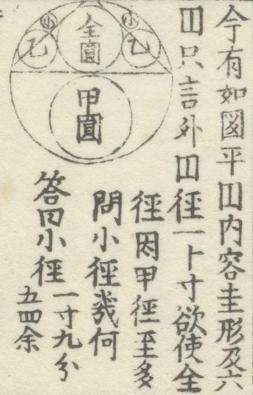 今有如圖平円内容圭形及六
円只言外円径一十寸欲使全
径因甲径至多
問小径幾何
答曰小径一寸九分
五四余
小
乙
全圓
小
乙
甲圓